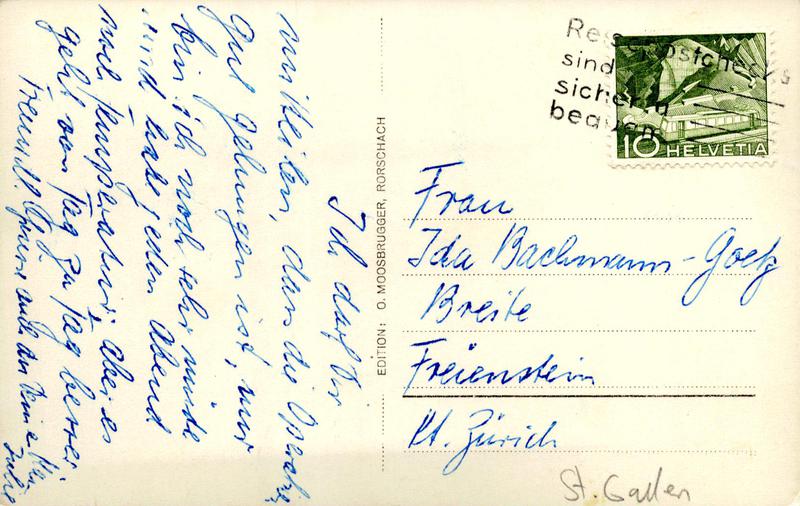 Ich darf Dir
mitteilen, dass die Operation
gut gelungen ist, nur
bin ich noch sehr müde
und habe jeden Abend
noch Temperatur; aber es
geht von Tag zu Tag besser
Freundl. Grüsse auch an Deine
Julie
EDITION: O. MOOSBRUGGER, RORSCHACH
Reisepostchecks
sind
sicher u
bequem
10 HELVETIA
Frau
Ida Bachmann-Goetz
Breite
Freienstein
Kt. Zürich
St. Gallen